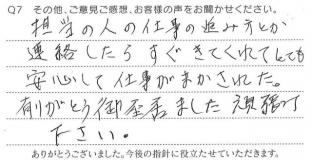 Q7 その他、ご意見ご感想、お客様の声をお聞かせください。
担当の人の仕事の進み方とか
連絡したらすぐきてくれてとても
安心して仕事がまかされた。
有りがとう御座居ました 頑張って
下さい。
ありがとうございました。今後の指針に役立たせていただきます。